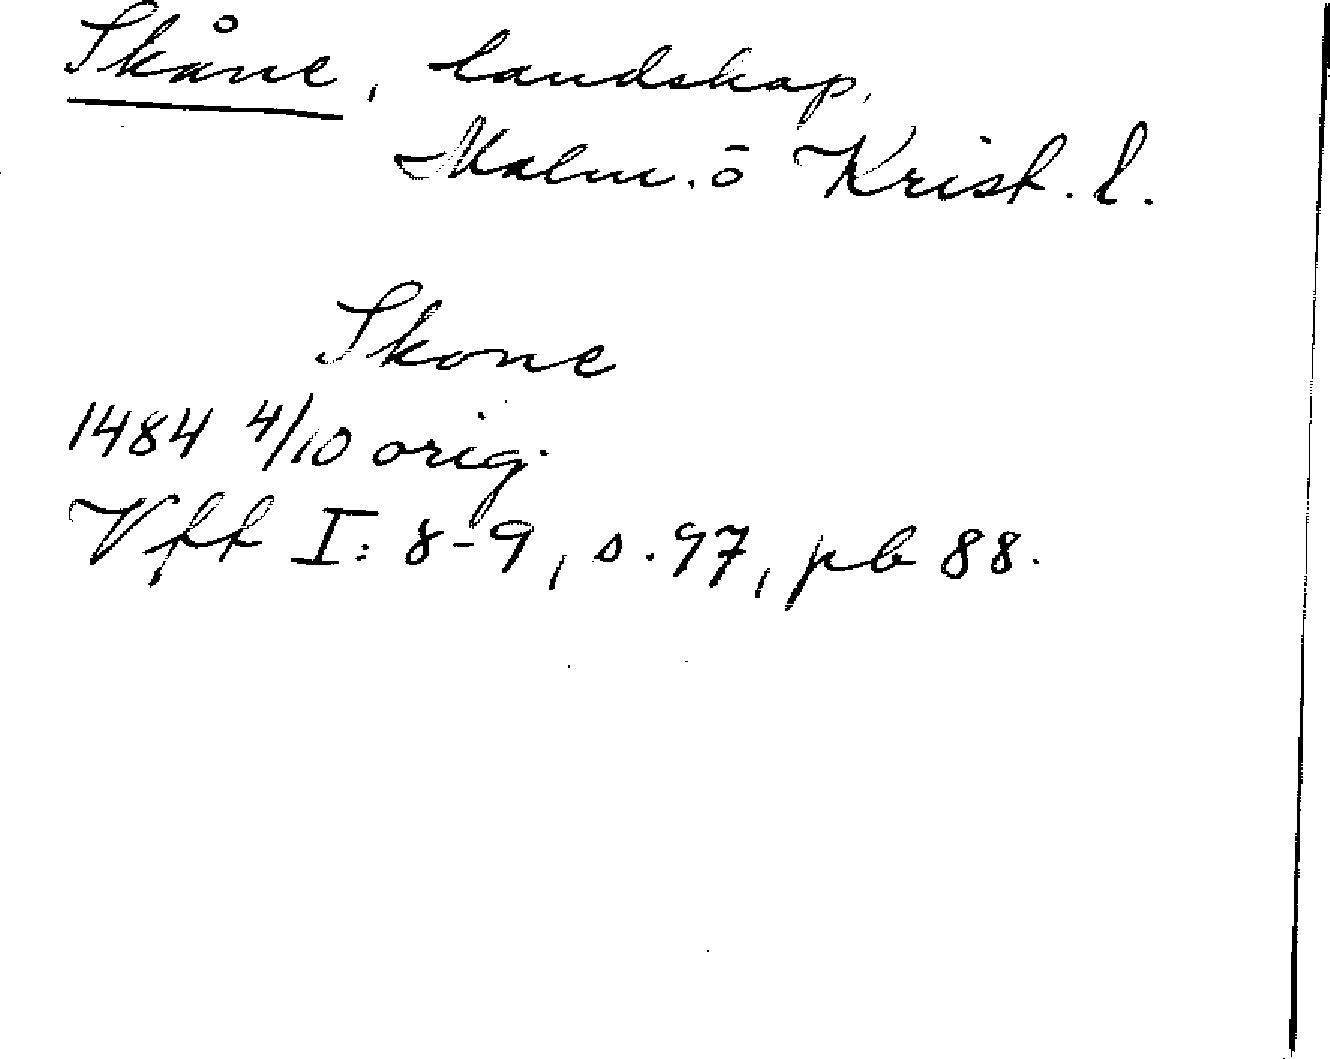 Skåne, landskap,
Malm. o Krist. l.
Skone
1484 4/10 orig.
Vff I: 8-9, s. 97, pb 88.